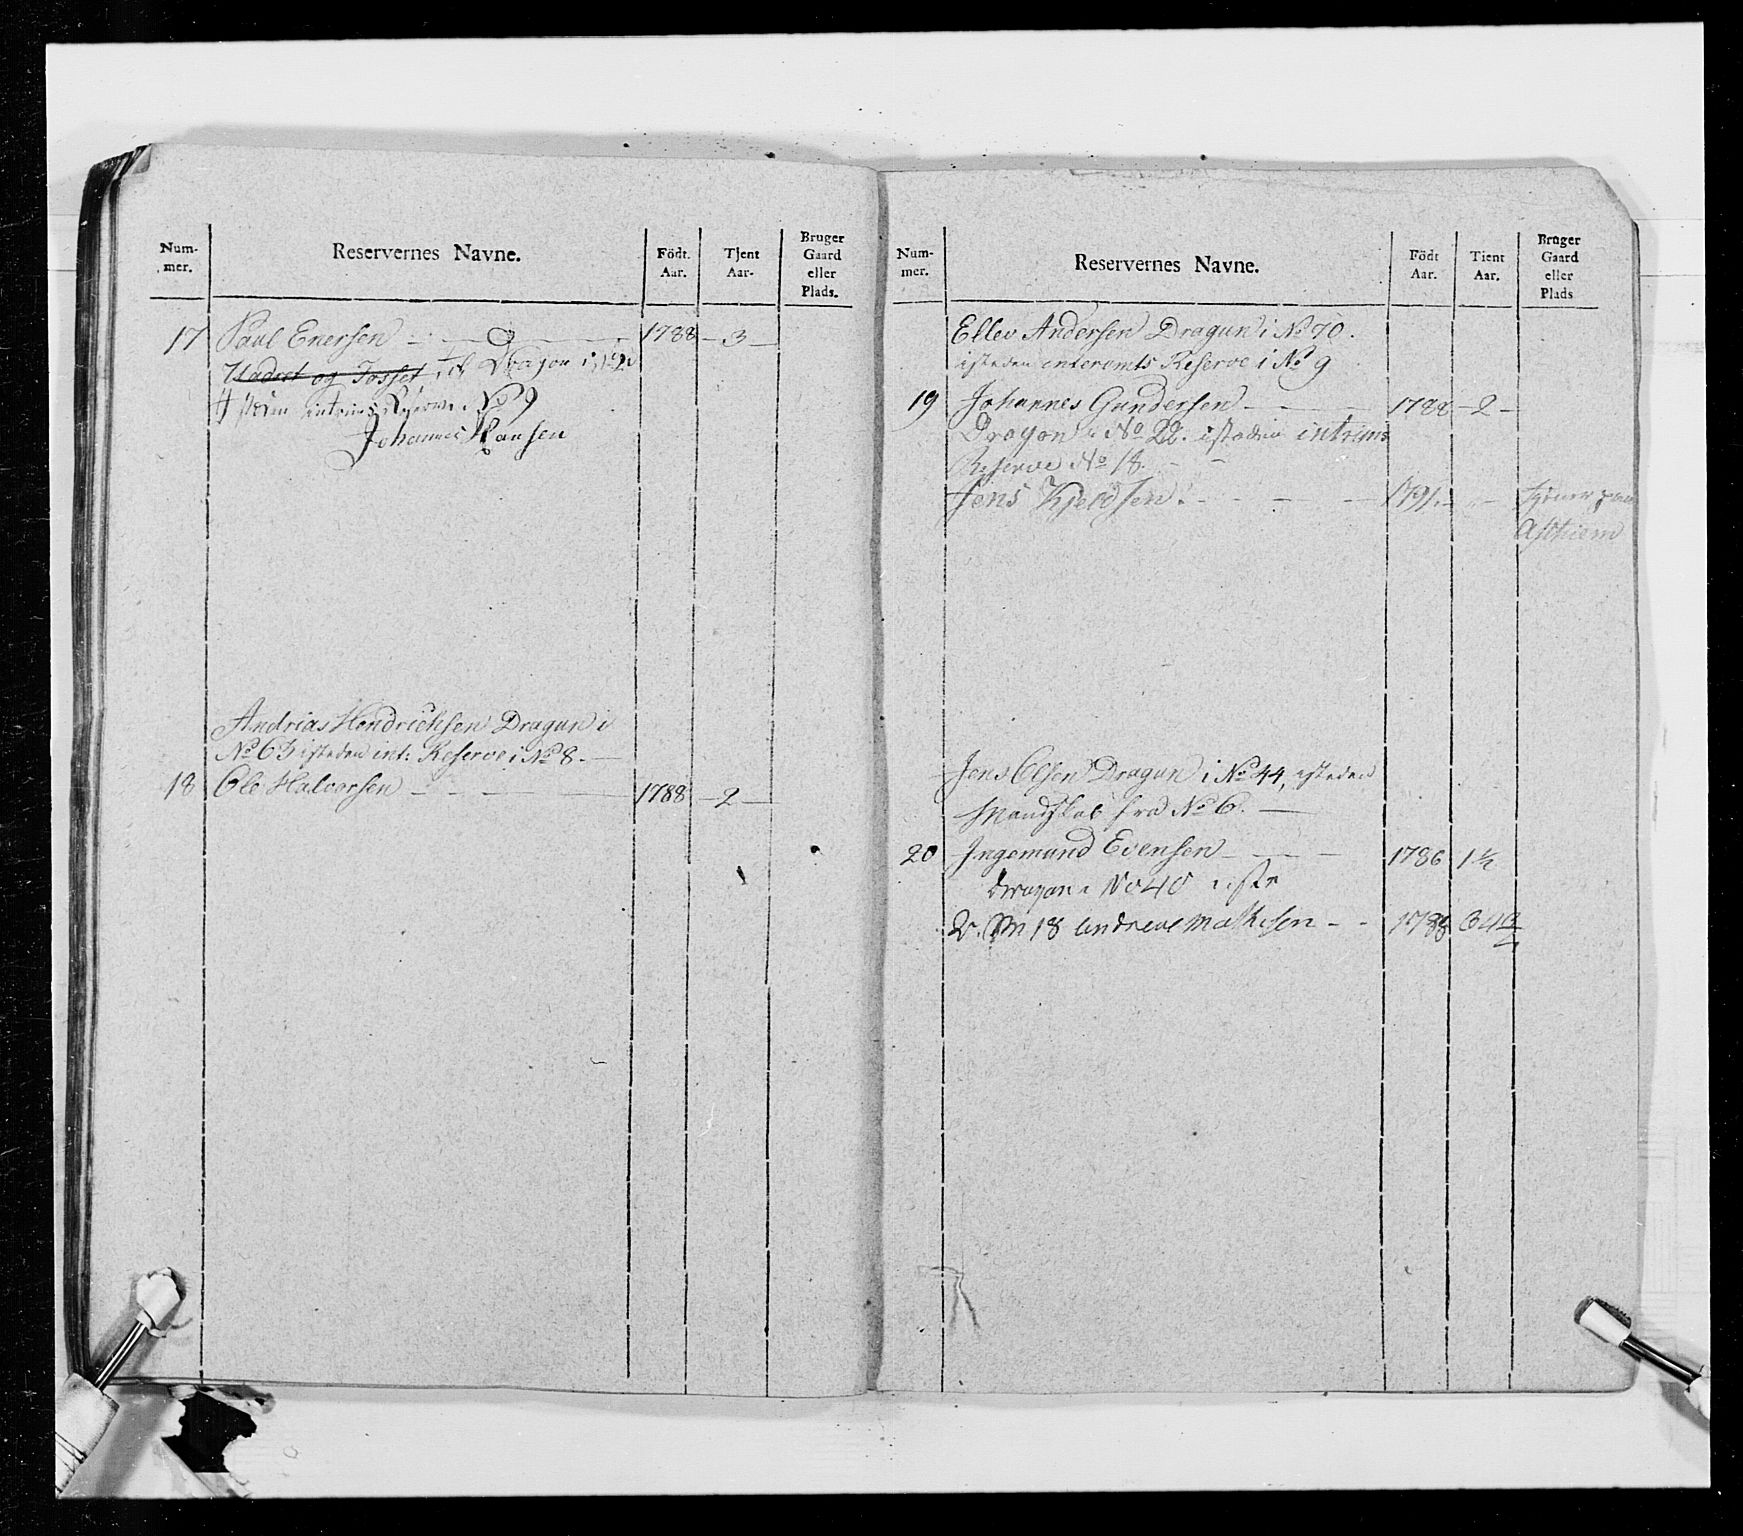 Num-
mer.
Reservernes Navne.
Födt.
Aar.
Tjent
Aar-
Bruger
Gaard
eller
Plads.
17 Paul Enersen 1788 - 3 -
og Josset til Dragon i No
intrims Reserve No 9
Johannes Hansen
Andrias Hendrichsen Dragun i
No 63 isteden int: Reserve i No 8. -
18 Ole Halvorsen - - - 1788 - 2 -
Num-
mer.
Reservernes Navne.
Födt
Aar.
Tient
Aar.
Bruger
Gaard
eller
Plads
Ellev Andersen Dragun i No 70.
isteden interomts Reserve i No 9
19 Johannes Gundersen - - 1788 - 2 -
Dragon i No 22. isteden intrims
Reserve No 18. - -
Jens Kjeldsen. - - - - 1791. -
Jens Olsen Dragun i No 44, isteden
Mandskab fra No 6. -
20 Ingemund Evensen - - - 1786 1½
dragon i No 40 iste
No 18 andreas Mathisen - - 1788